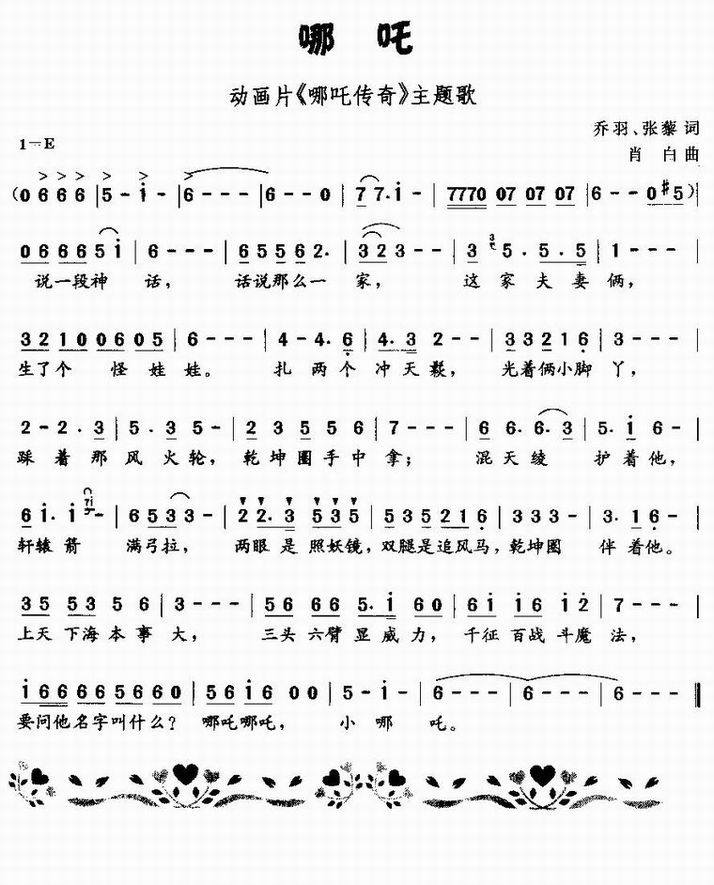 哪 吒
动画片《哪吒传奇》主题歌
乔羽、张藜词
1=E
肖 白曲
(0 6 6 6 | 5 - i - | 6 - - - | 6 - - 0 | 7 7. i - | 7770 07 07 07 | 6 - - 0 #5)
0 6 6 6 5 i | 6 - - - | 6 5 5 6 2. | 3 2 3 - - | 3 5. 5. 5 | 1 - - - |
说一段神 话, 话说那么一 家, 这 家 夫 妻 俩,
3 2 1 0 0 6 0 5 | 6 - - - | 4 - 4. 6 | 4. 3 2 - - | 3 3 2 1 6 | 3 - - - |
生了个 怪 娃 娃。 扎 两 个 冲 天 鬏, 光着俩小脚 丫,
2 - 2. 3 | 5. 3 5 - | 2 3 5 5 5 | 7 - - - | 6 6. 6. 3 | 5. i 6 - |
踩 着 那 风 火 轮, 乾 坤 圈 手 中 拿; 混 天 绫 护 着 他,
6 i. i - | 6 5 3 3 - | 2 2. 3 5 3 5 | 5 3 5 2 1 6 | 3 3 3 - | 3. 1 6 - |
轩辕 箭 满弓拉, 两眼 是 照妖镜, 双腿是追风马, 乾坤圈 伴 着他。
3 5 5 3 5 6 | 3 - - - | 5 6 6 6 5. i 6 0 | 6 i i 6 i 2 | 7 - - - |
上天 下海 本 事 大, 三头 六臂 显 威 力, 千征 百战 斗魔 法,
i 6 6 6 6 5 6 6 0 | 5 6 i 6 0 0 | 5 - i - | 6 - - - | 6 - - - | 6 - - - ‖
要问他名字叫什么? 哪吒哪吒, 小 哪 吒。